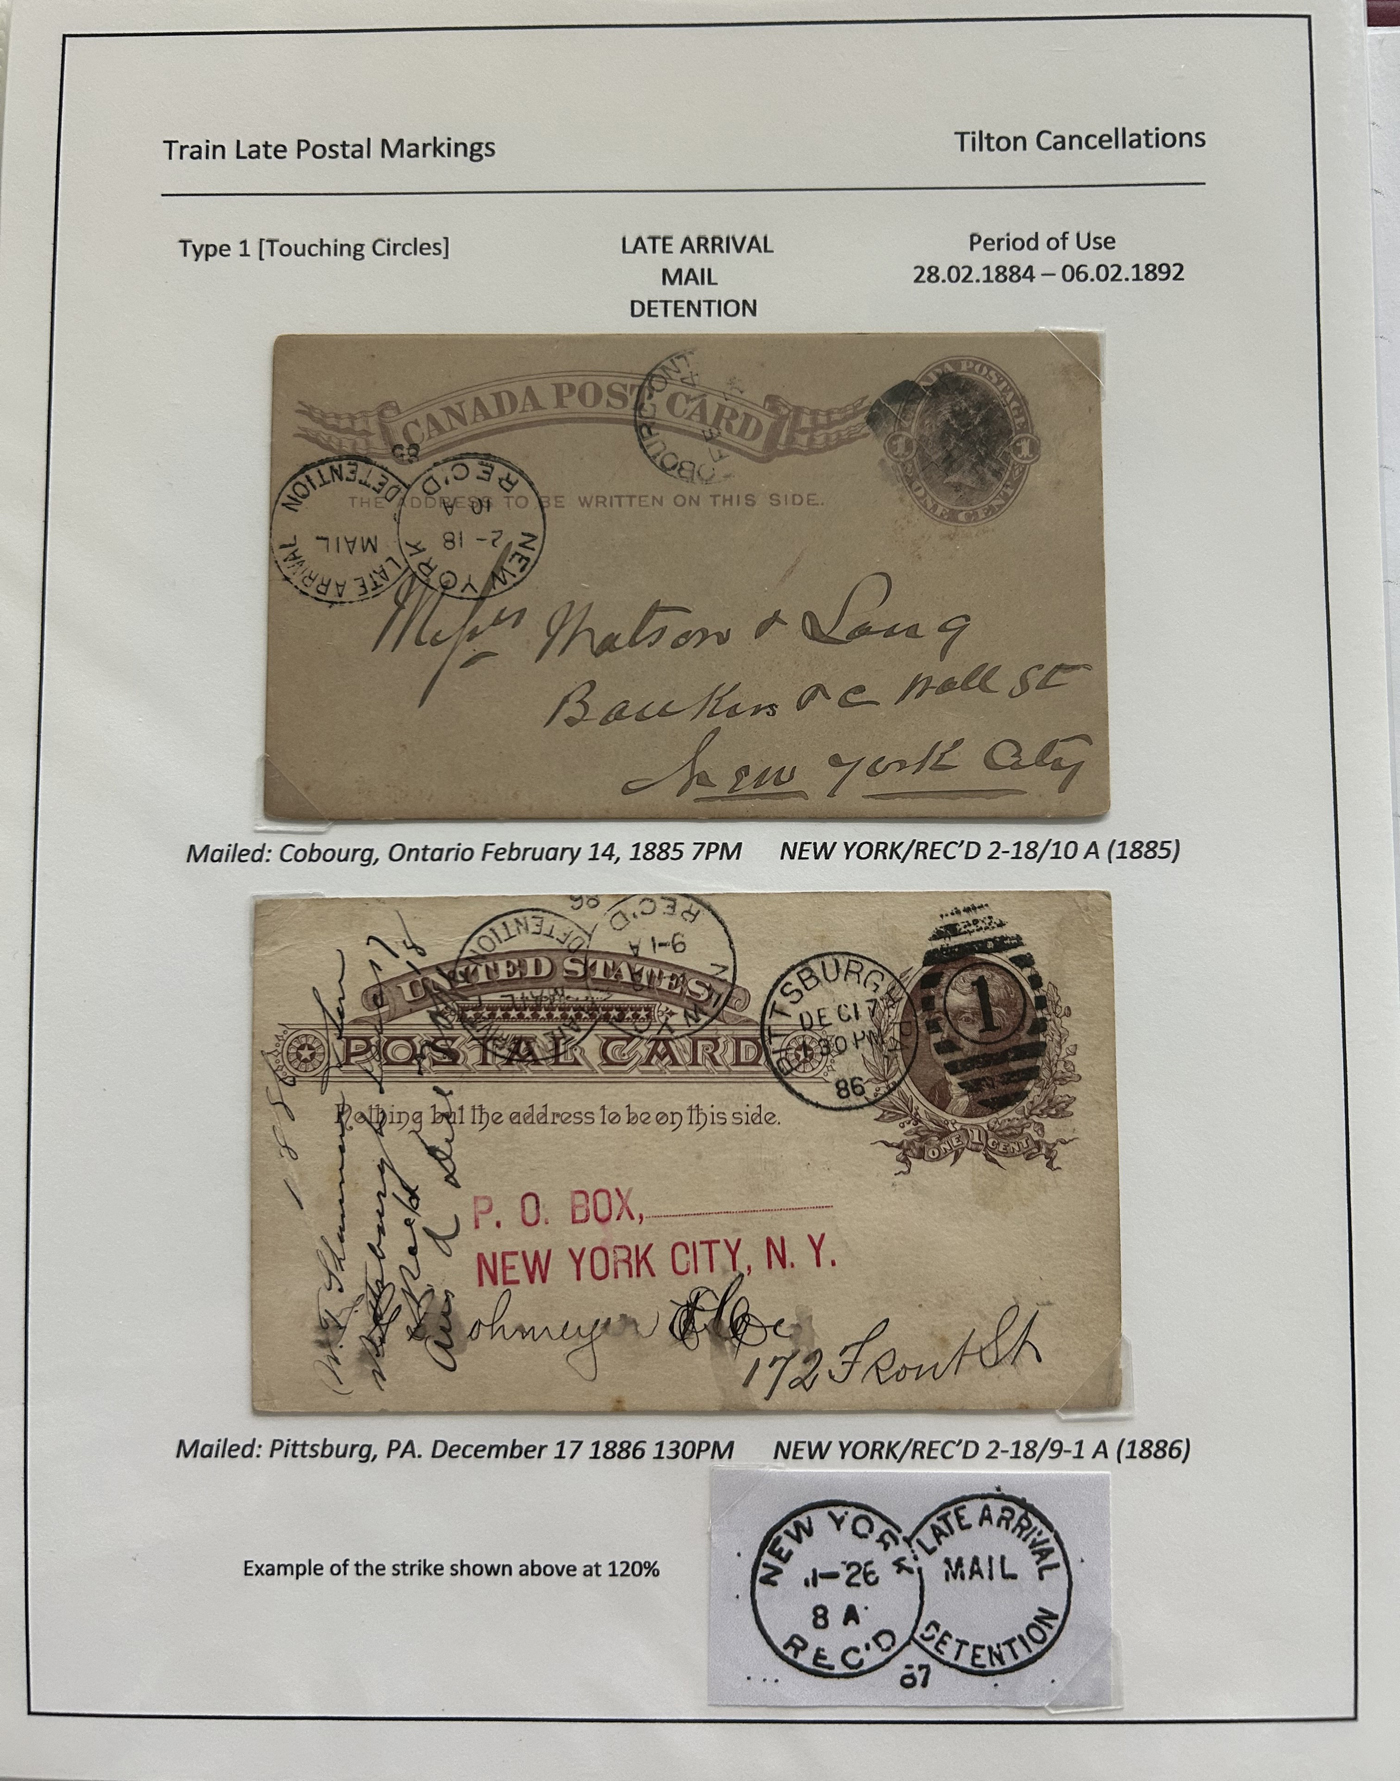 Train Late Postal Markings
Tilton Cancellations
Type 1 [Touching Circles]
LATE ARRIVAL
MAIL
DETENTION
Period of Use
28.02.1884 – 06.02.1892
CANADA POST CARD
COBOURG-ONT
FE 14
CANADA POSTAGE
1 1
ONE CENT
THE ADDRESS TO BE WRITTEN ON THIS SIDE.
LATE ARRIVAL
MAIL
DETENTION
NEW YORK
2-18
10 A
REC'D
85
Messrs Watson & Lang
Bankers &c Wall St
New York City
Mailed: Cobourg, Ontario February 14, 1885 7PM
NEW YORK/REC’D 2-18/10 A (1885)
UNITED STATES
POSTAL CARD
Nothing but the address to be on this side.
DETENTION
9-1 A
REC'D
86
PITTSBURGH PA
DEC 17
130 PM
86
1
ONE 1 CENT
1886
P. O. BOX,
NEW YORK CITY, N. Y.
ohmeyer & Co
172 Front St
Mailed: Pittsburg, PA. December 17 1886 130PM
NEW YORK/REC’D 2-18/9-1 A (1886)
Example of the strike shown above at 120%
NEW YORK
1-26
8 A
REC'D
LATE ARRIVAL
MAIL
DETENTION
87